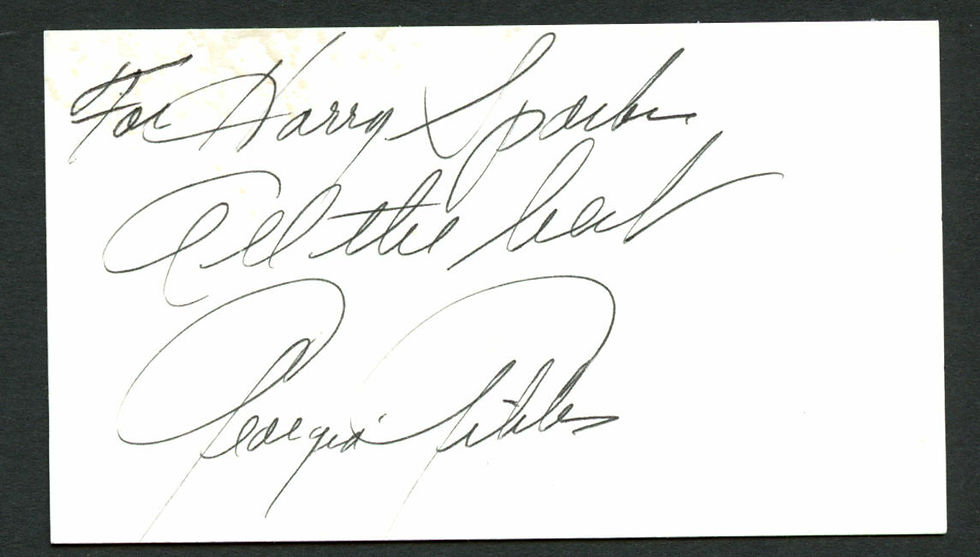 For Harry Sparks
All the best
Georgia Gibbs